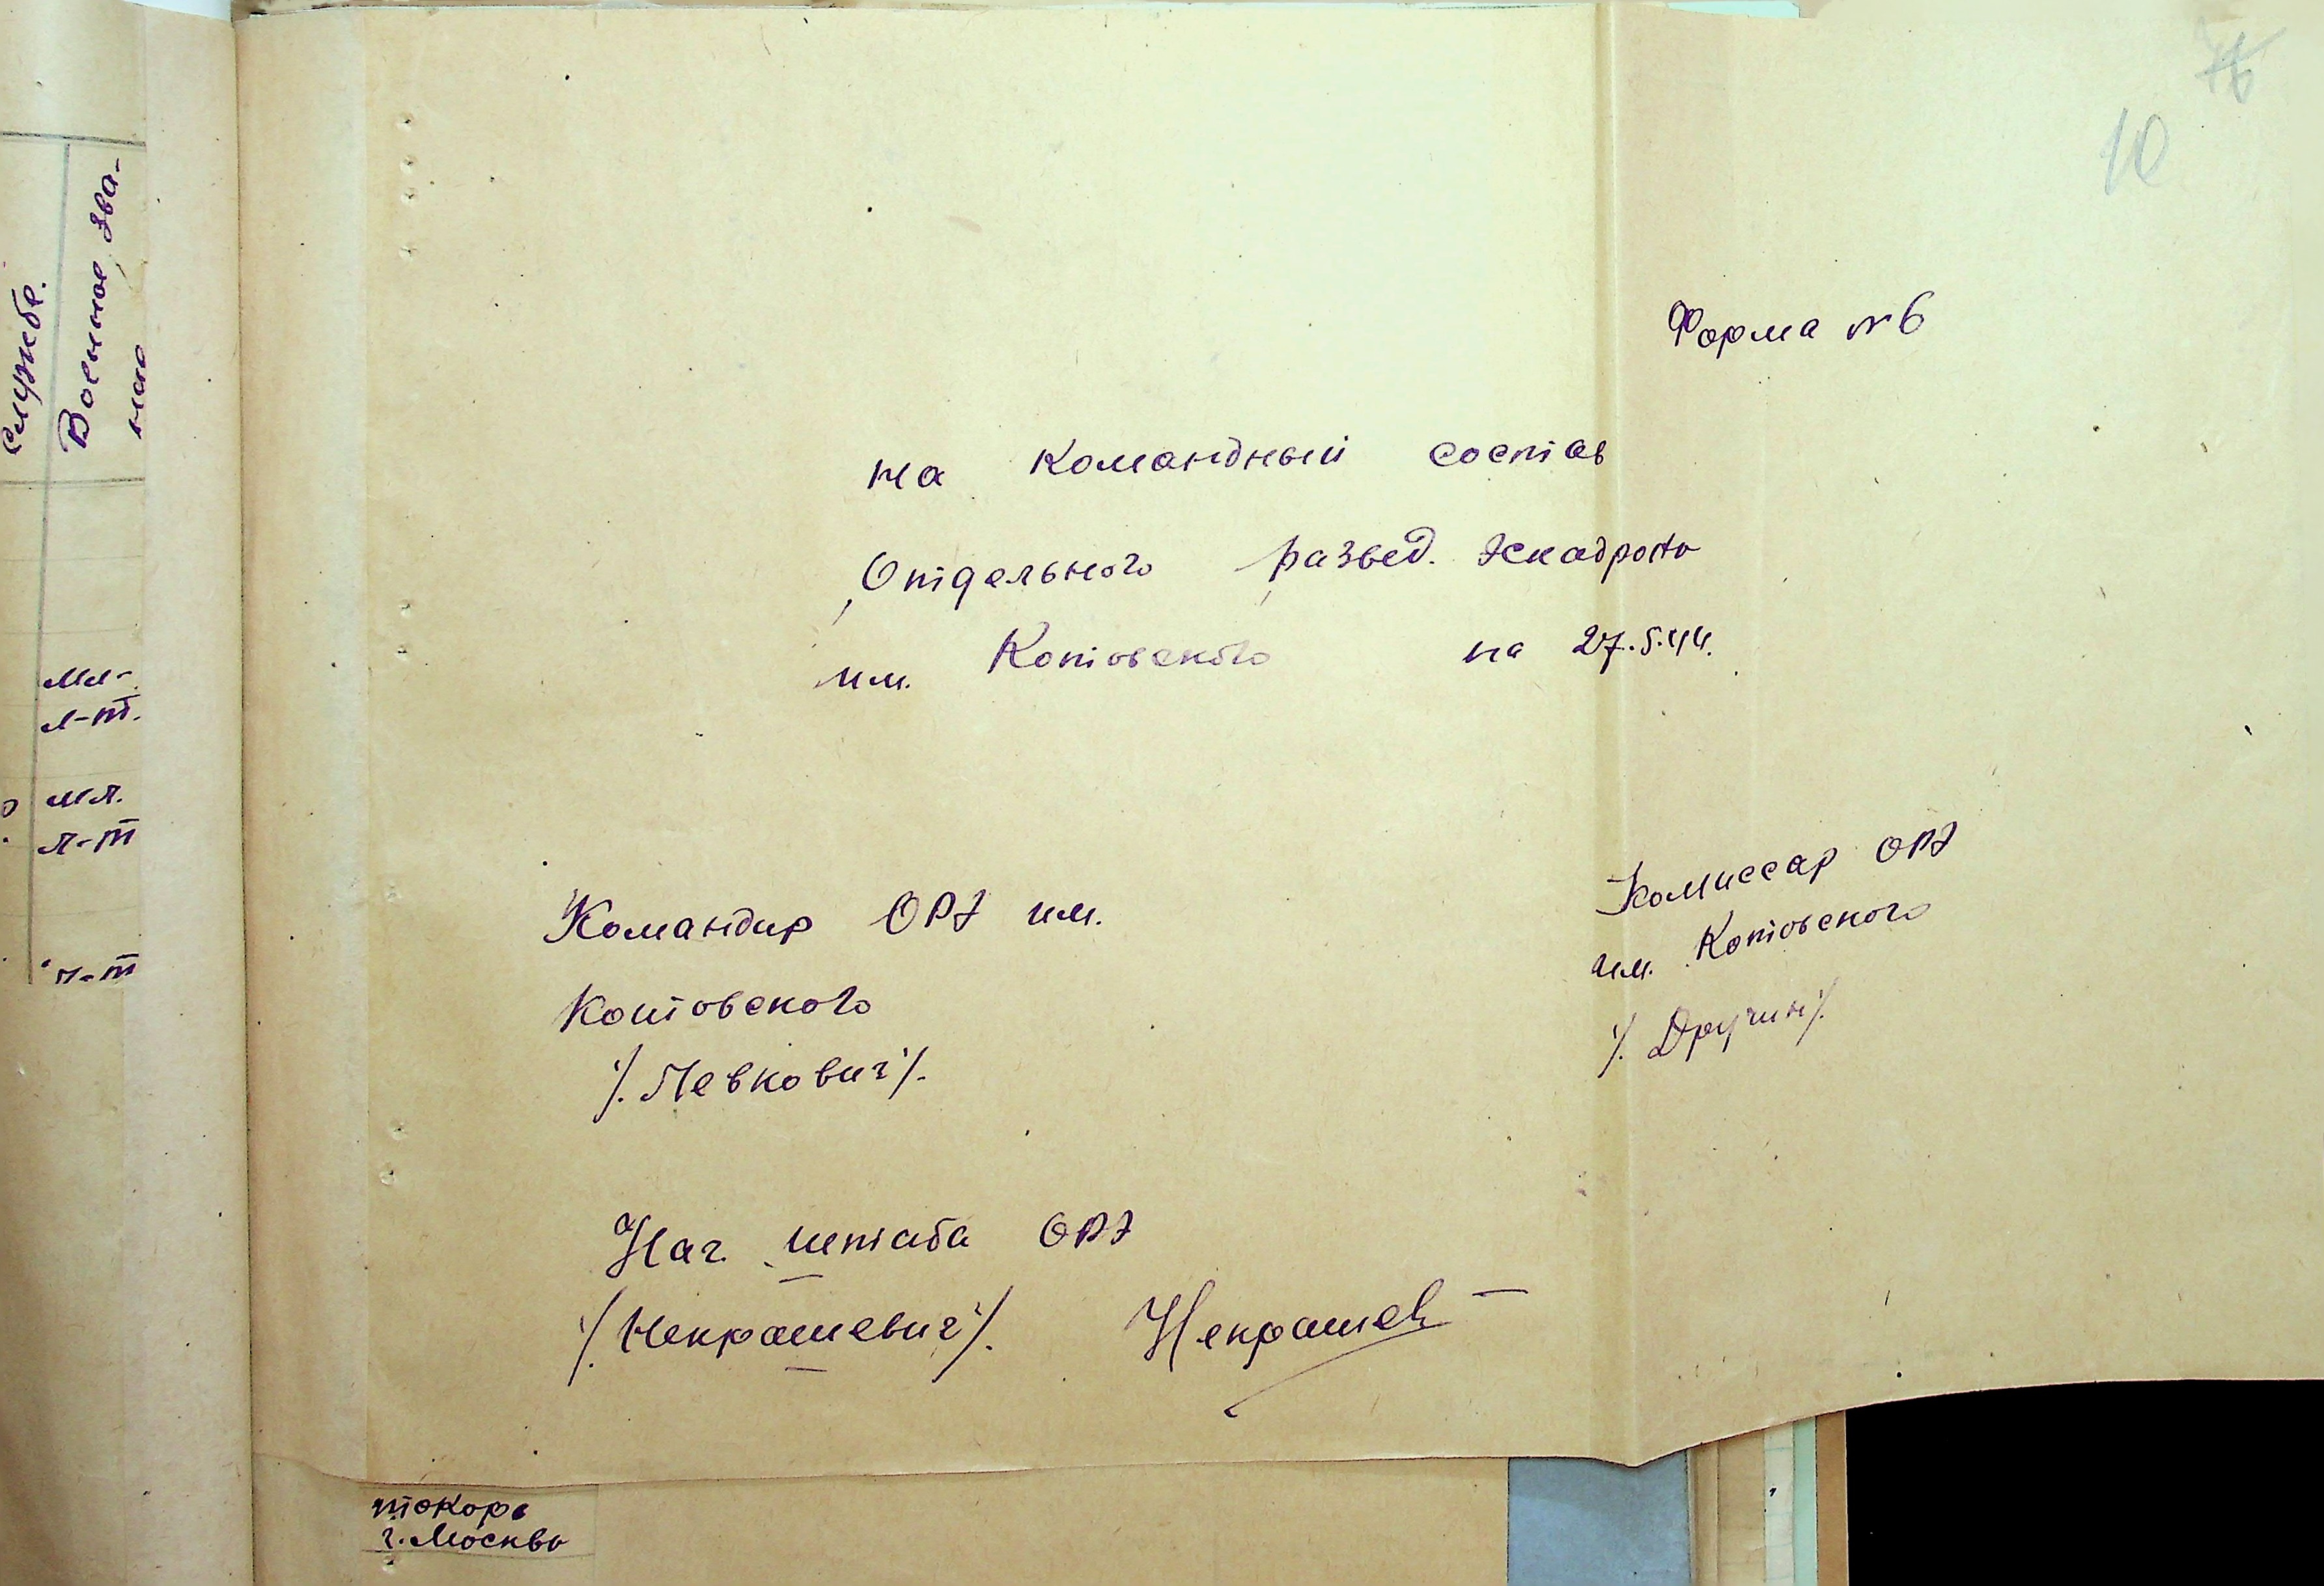 Службе.
Военное зва-
ние
мл-
л-т.
мл.
л-т
л-т
10
Форма №6
на командный состав
Отдельного развед. эскадрона
им. Котовского на 27.5.44.
Командир ОРЭ им.
Котовского
/. Левкович /.
Комиссар ОРЭ
им. Котовского
/. Дручин /.
Нач. штаба ОРЭ
/. Некрашевич /. Некрашев
токарь
г. Москвы